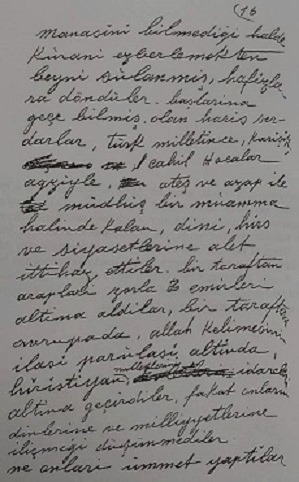 (16
Manasini bilmediği halde
Kuranı ezberlemekten
beyni sulanmış, hafızla-
ra döndüler. başlarına
geçe bilmiş olan haris ser-
darlar, türk milletince, Karışık
cahil Hocalar
ağziyle, ateş ve azap ile
müdhiş bir muamma
halinde Kalan, dini, hırs
ve siyasetlerine alet
ittihaz ettiler. bir taraftan
arapları zorla emirleri
altına aldılar, bir taraftan
avrupada, allah Kelimesinin
ilası parulası altında,
hıristiyan milletlerini idareleri
altına geçirdiler, fakat onların
dinlerine ve milliyetlerine
ilişmeği düşünmediler.
ne onları ümmet yaptılar